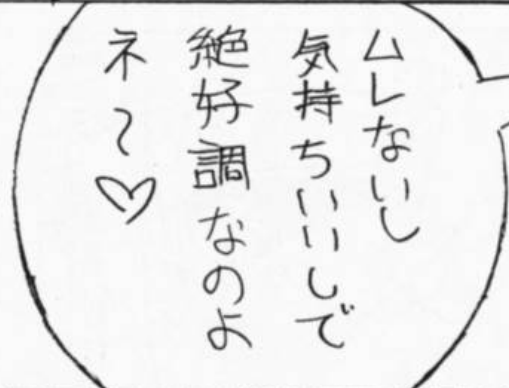 ムレないし
気持ちいいしで
絶好調なのよ
ネ〜♡